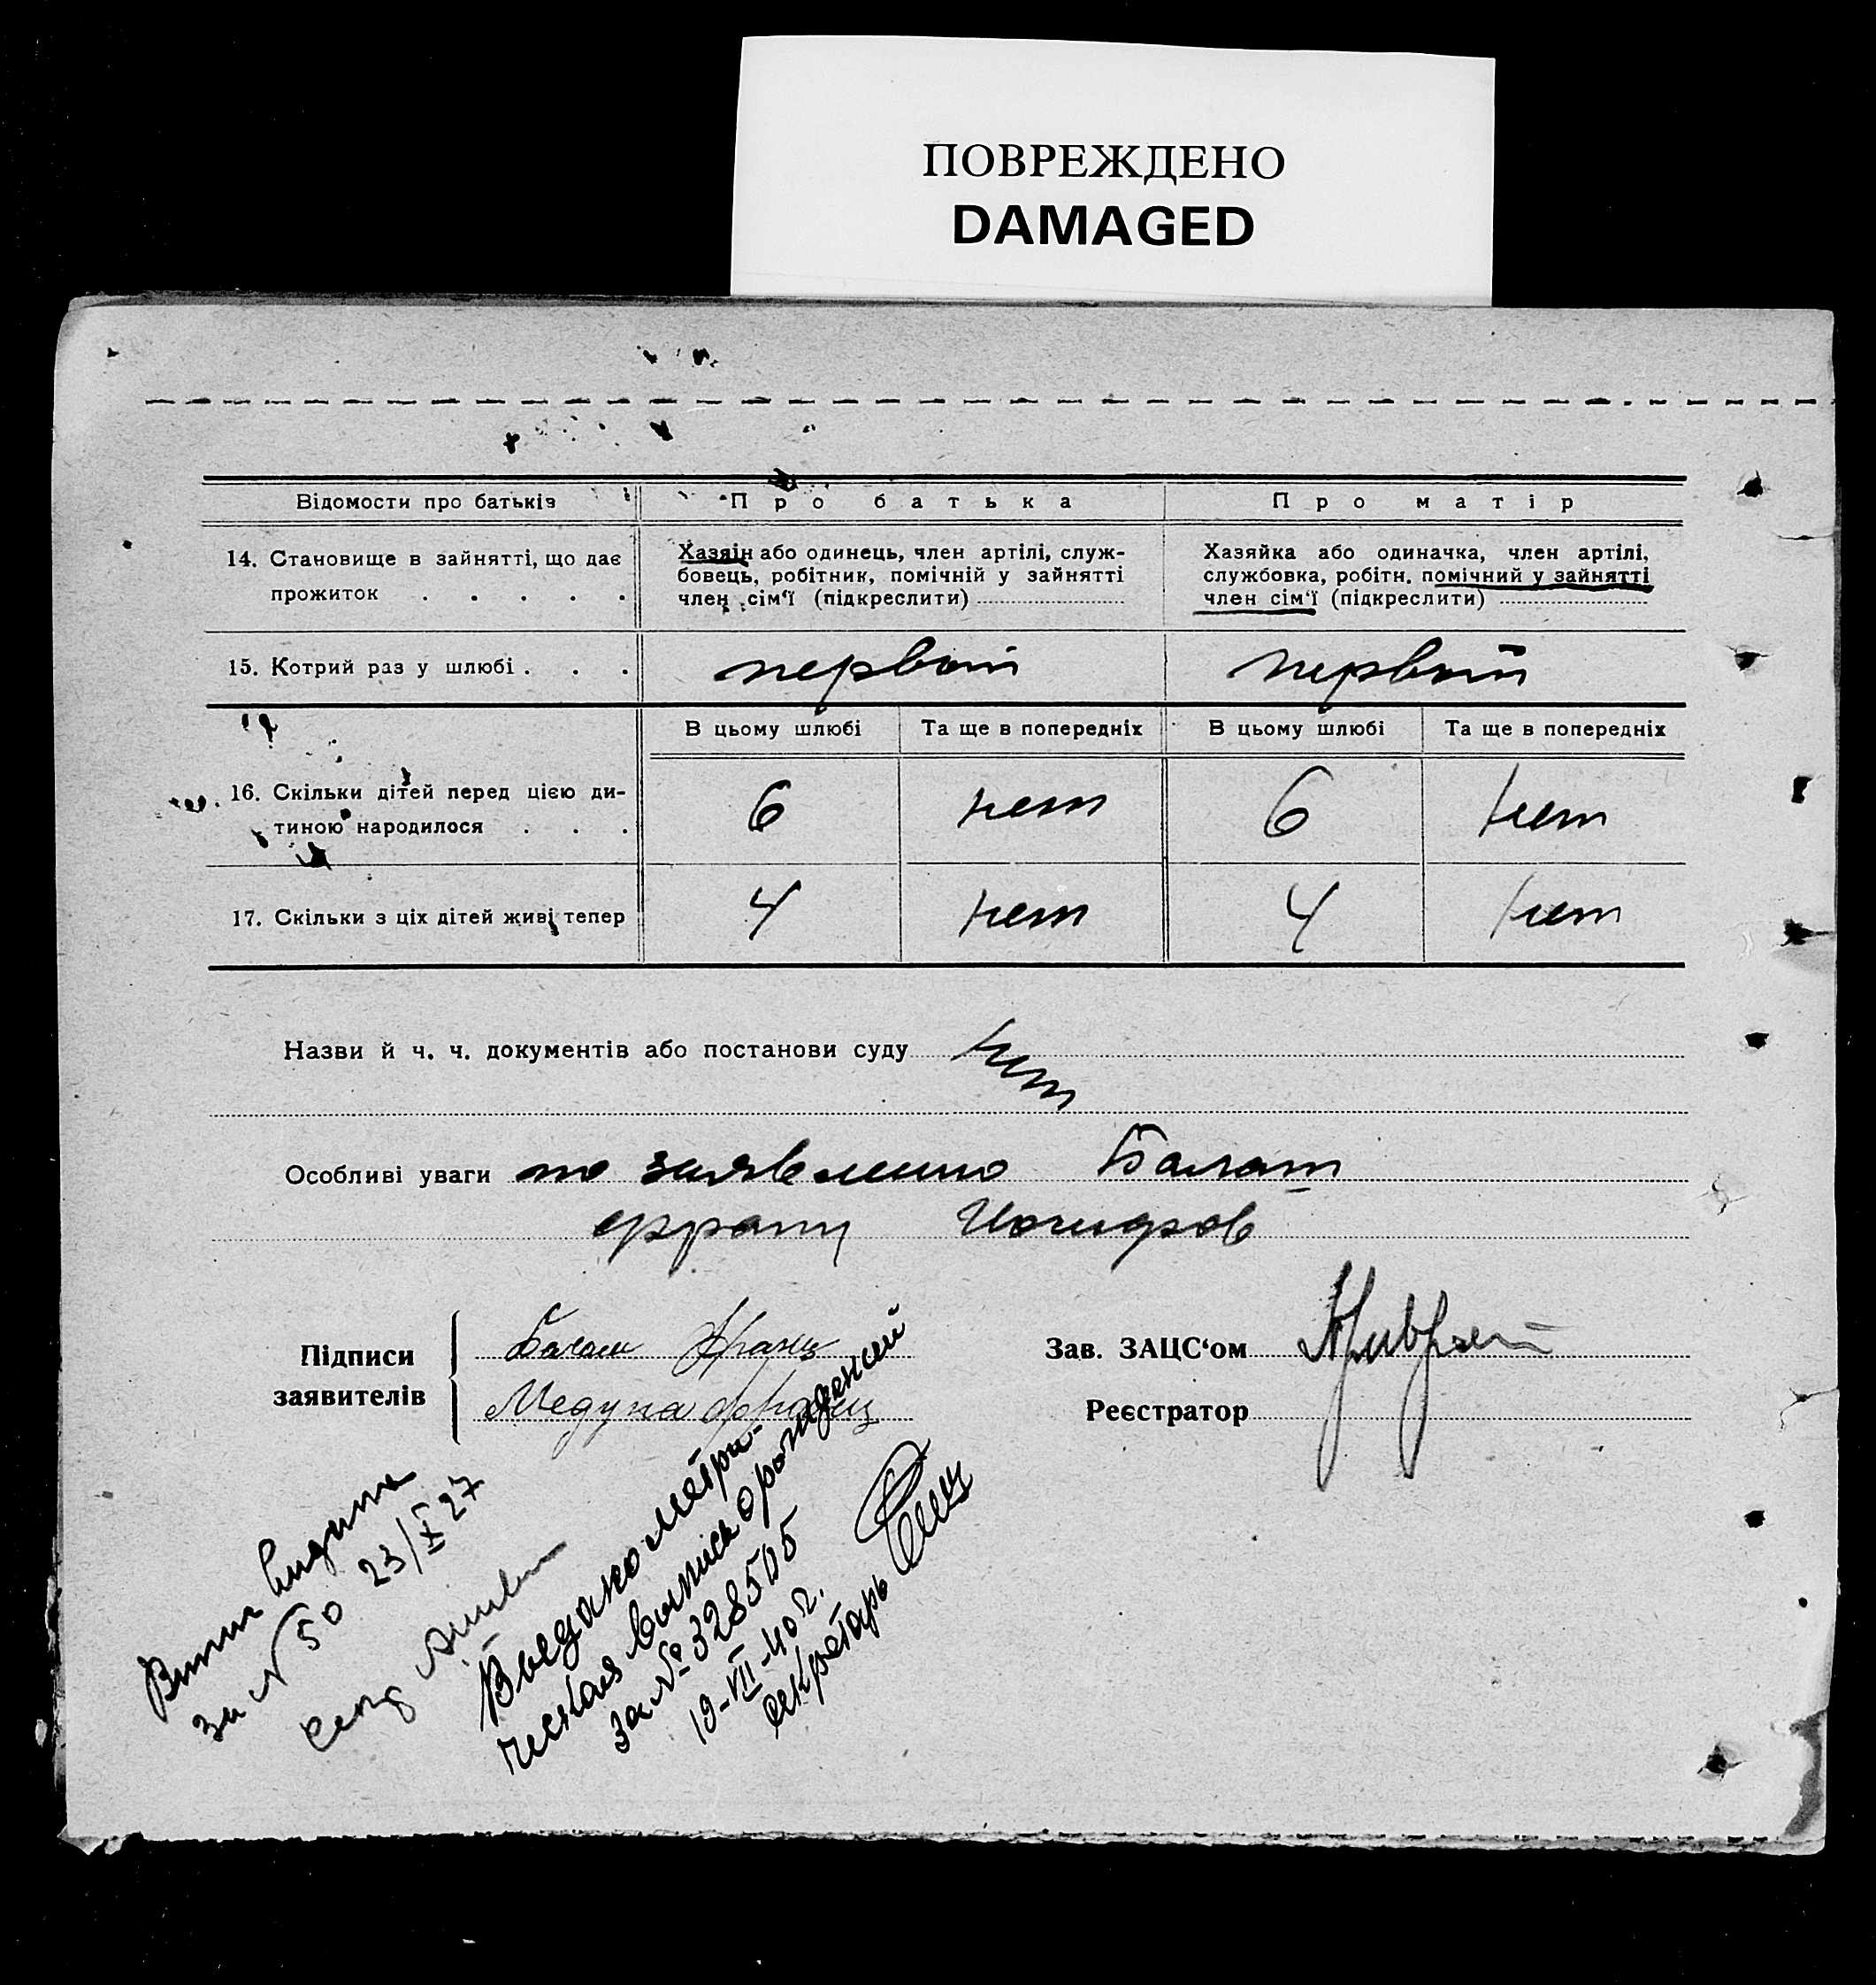 ПОВРЕЖДЕНО
DAMAGED
Відомости про батьків
Про батька
Про матір
14. Становище в зайнятті, що дає
прожиток . . . . .
Хазяін або одинець, член артілі, служ-
бовець, робітник, помічній у зайнятті
член сім'ї (підкреслити)
Хазяйка або одиначка, член артілі,
службовка, робітн. помічний у зайнятті
член сім'ї (підкреслити)
15. Котрий раз у шлюбі . . .
первый
первый
В цьому шлюбі
Та ще в попередніх
В цьому шлюбі
Та ще в попередніх
16. Скільки дітей перед цією ди-
тиною народилося . . .
6
нет
6
нет
17. Скільки з ціх дітей живі тепер
4
нет
4
нет
Назви й ч. ч. документів або постанови суду нет
Особливі уваги по заявлению Балат
Франц
Підписи
заявителів
Франц
Медуна Франц
Зав. ЗАЦС'ом
Реєстратор
видана
за № 50 23/X 27
Выдано метри-
ческая выпись о рождении
за № 328505
19-VII-40 г.
секретарь